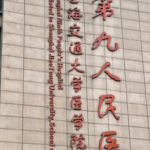 第九人民医
上海交通大学医学院
Shanghai Ninth People's Hospital
Shanghai JiaoTong University, School